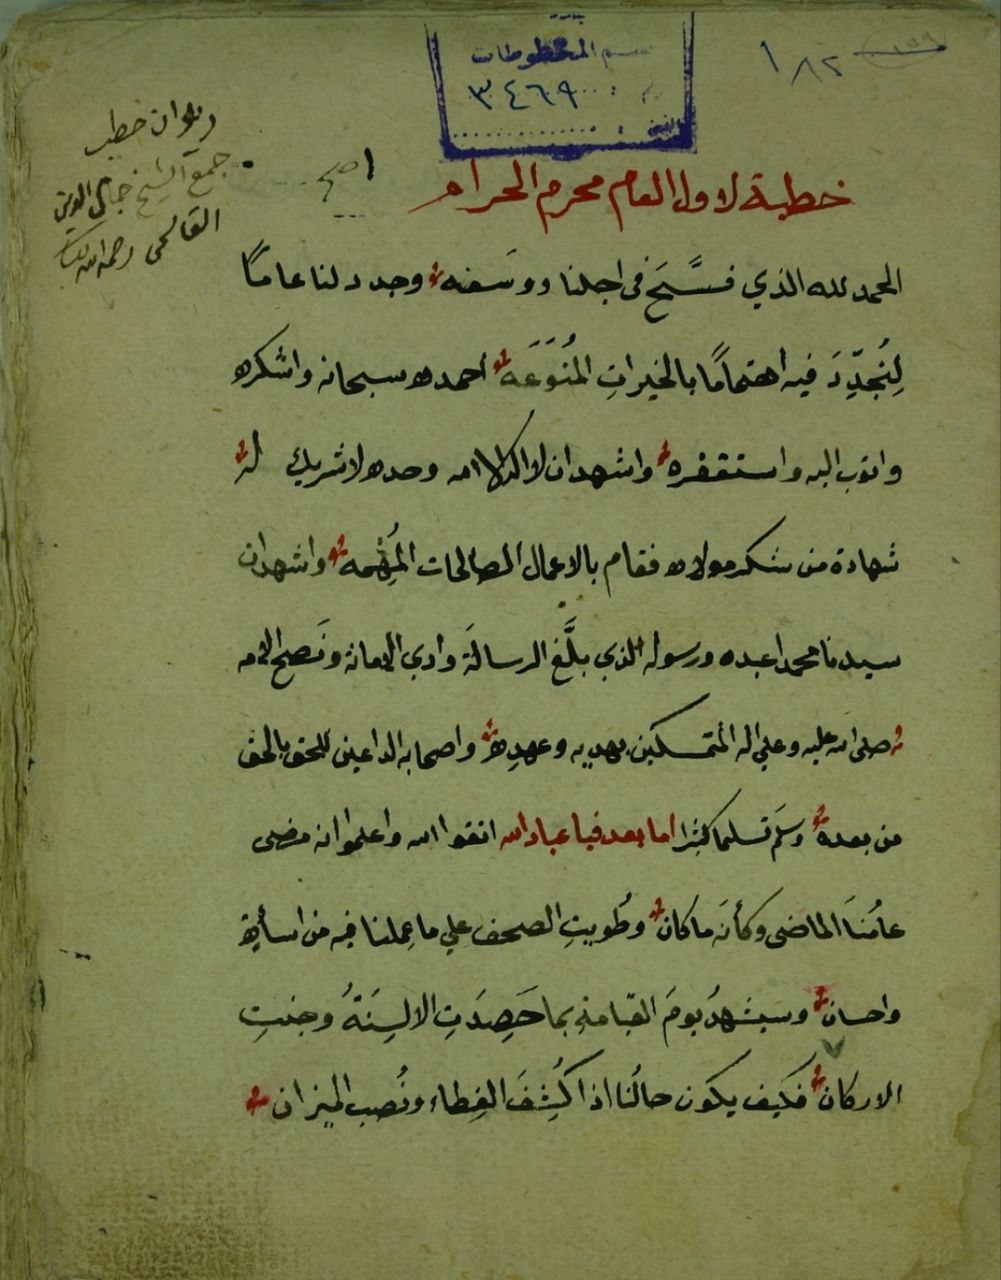 ١٨٢
١٥٩
قسم المخطوطات
٣٤٦٩
ديوان خطب
جمع الشيخ جمال الدين
القاسمي رحمه الله
خطبة لاول العام محرم الحرام
الحمد لله الذي فسَّحَ في اجلنا ووَسعه وجدد لنا عامًا
لِنُجدِّدَ فيه اهتمامًا بالخيراتِ المُنَوَعَه احمده سبحانه واشكره
واتوب اليه واستغفره واشهد ان لا اله الا الله وحده لا شريك له
شهادة من شكر مولاه فقام بالاعمال الصالحات المُهمه واشهد ان
سيدنا محمدا عبده ورسوله الذي بلَّغ الرسالَة وادي الامانة ونَصح الامه
صلى الله عليه وعلي اله المتمسكين بهديه وعهدِه واصحابه الداعين للحق بالحق
من بعده وسلم تسليما كثيرا اما بعد فيا عباد الله اتقوا الله واعلموا انه مضى
عامُنَا الماضي وكأنَه ما كان وطُويتِ الصحف علي ما عملنا فيه من اسأة
واحسان وسيشهدُ يومَ القيامةِ بما حَصِدَتِ الالسِنَةُ وجنتِ
الاركان فكيف يكون حالُنا اذا كُشِفَ الغِطاء ونُصب الميزان